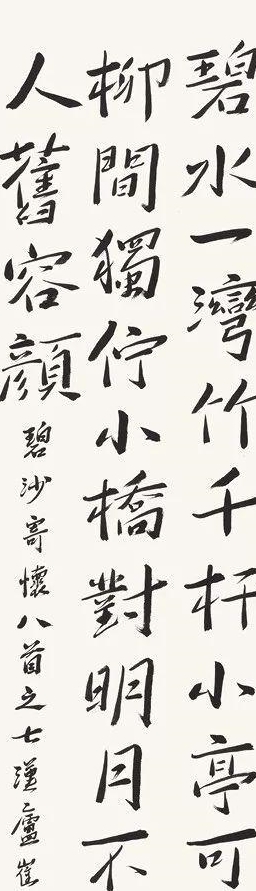 碧水一灣竹千杆小亭可
柳間獨佇小橋對明月不
人舊容顏
碧沙寄懷八首之七廬崔